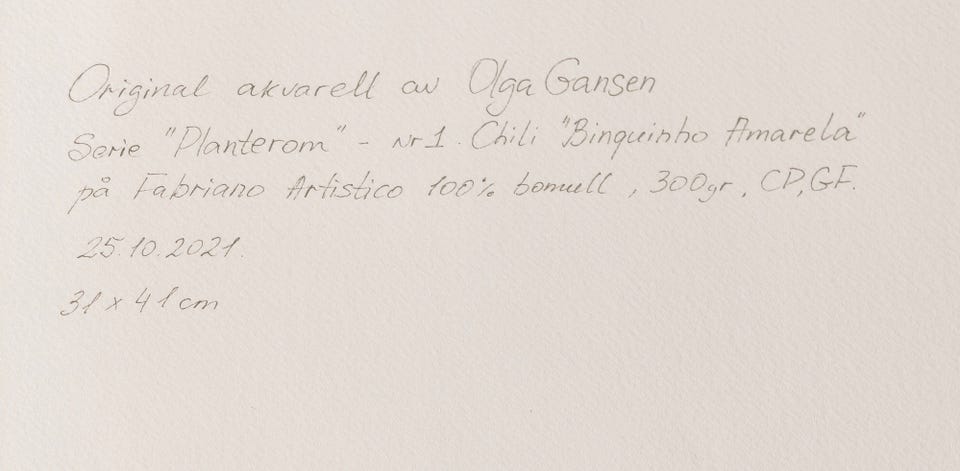 Original akvarell av Olga Gansen
Serie "Planterom" - Nr 1. Chili "Binquinho Amarela"
på Fabriano Artistico 100% bomull, 300gr, CP, GF.
25.10.2021.
31 x 41 cm